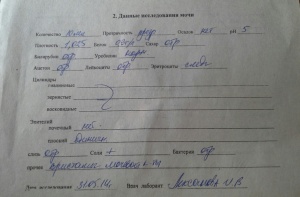 2. Данные исследования мочи
Количество 10мл Прозрачность прозр Осадок нет pH 5
Плотность Белок отр Сахар отр
Билирубин отр Уробилин норм
Ацетон отр Лейкоциты отр Эритроциты
Цилиндры
гиалиновые
зернистые
восковидные
Эпителий
почечный
плоский
слизь отр Соли + Бактерии отр
прочие кристаллы мочевой к-ты
Дата исследования 31.05.14г Врач лаборант И.В